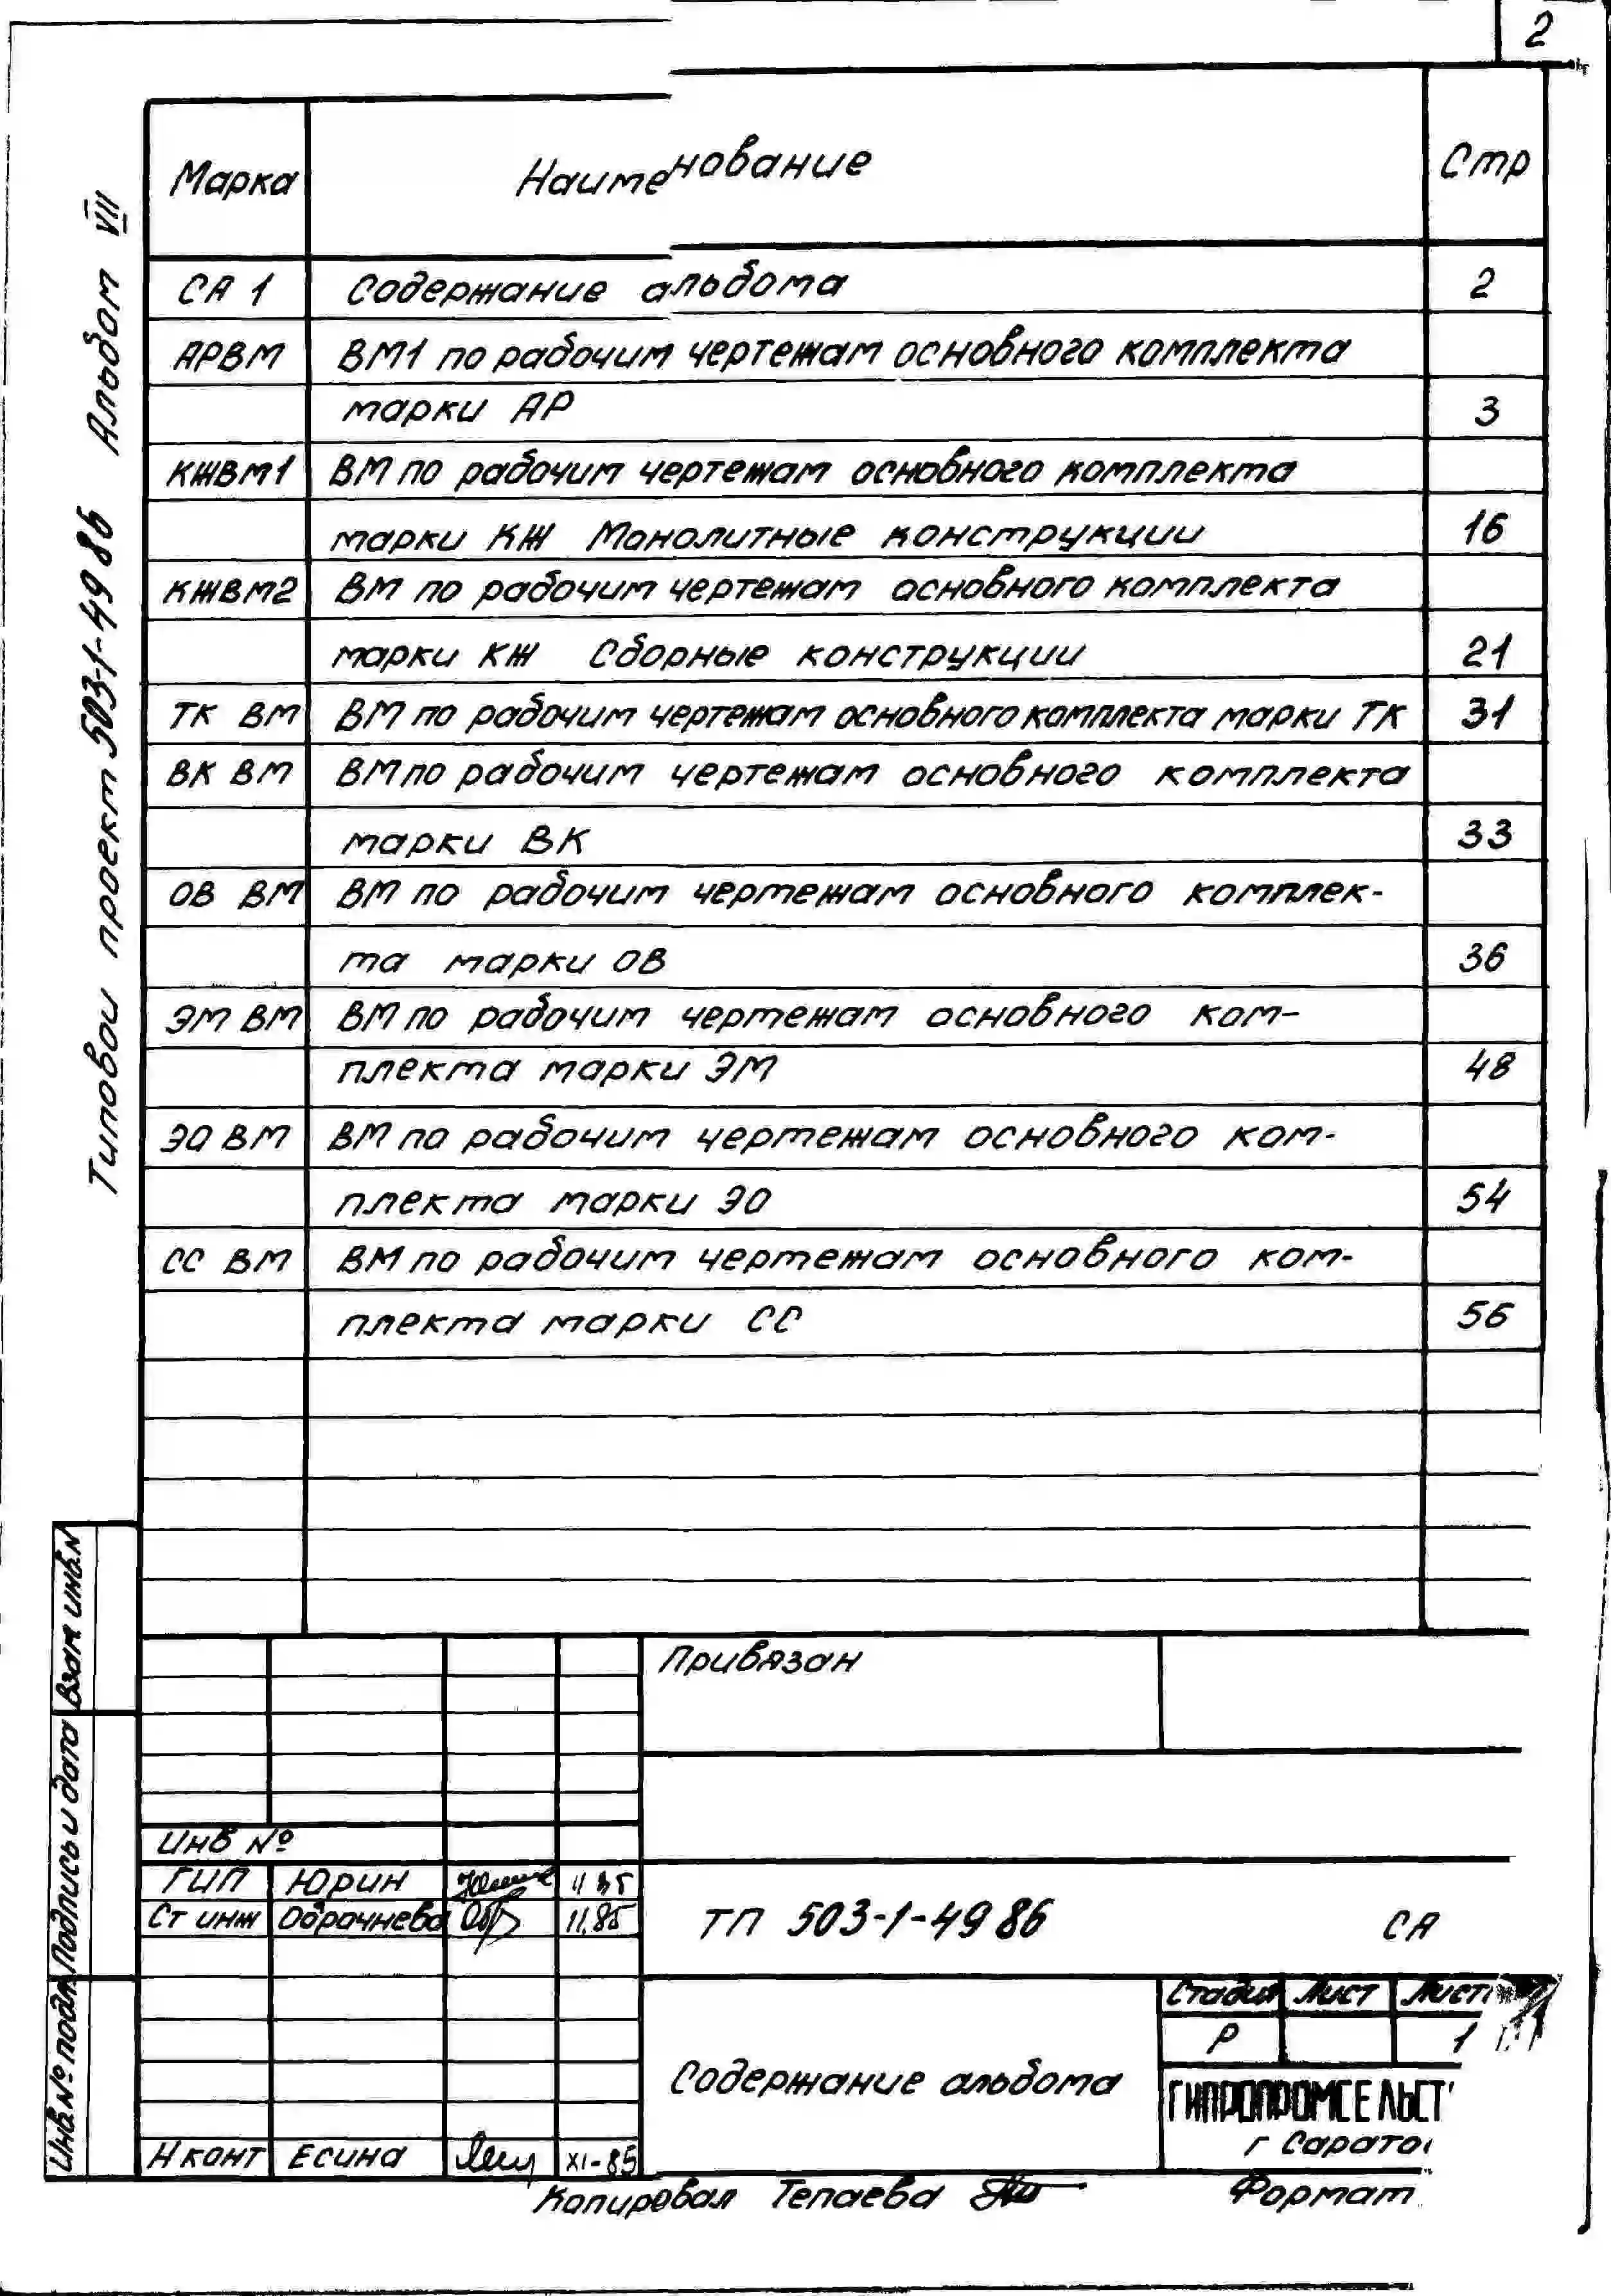 2
Типовой проект 503-1-49 86 Альбом VII
Марка Наименование Стр
СА 1 Содержание альбома 2
АРВМ ВМ1 по рабочим чертежам основного комплекта
марки АР 3
КЖВМ1 ВМ по рабочим чертежам основного комплекта
марки КЖ Монолитные конструкции 16
КЖВМ2 ВМ по рабочим чертежам основного комплекта
марки КЖ Сборные конструкции 21
ТК ВМ ВМ по рабочим чертежам основного комплекта марки ТК 31
ВК ВМ ВМ по рабочим чертежам основного комплекта
марки ВК 33
ОВ ВМ ВМ по рабочим чертежам основного комплек-
та марки ОВ 36
ЭМ ВМ ВМ по рабочим чертежам основного ком-
плекта марки ЭМ 48
ЭО ВМ ВМ по рабочим чертежам основного ком-
плекта марки ЭО 54
СС ВМ ВМ по рабочим чертежам основного ком-
плекта марки СС 56
Взам. инв.N
Подпись и дата
Инв.№ подл
Привязан
Инв №
ГИП Юрин
Ст инж Обрачнева 11.85
ТП 503-1-49 86 СА
Стадия Лист
Р 1
Содержание альбома
ГИПРОПРОМСЕЛЬСТ
г Сарато
Н контр Есина XI-85
Копировал Тепаева Формат